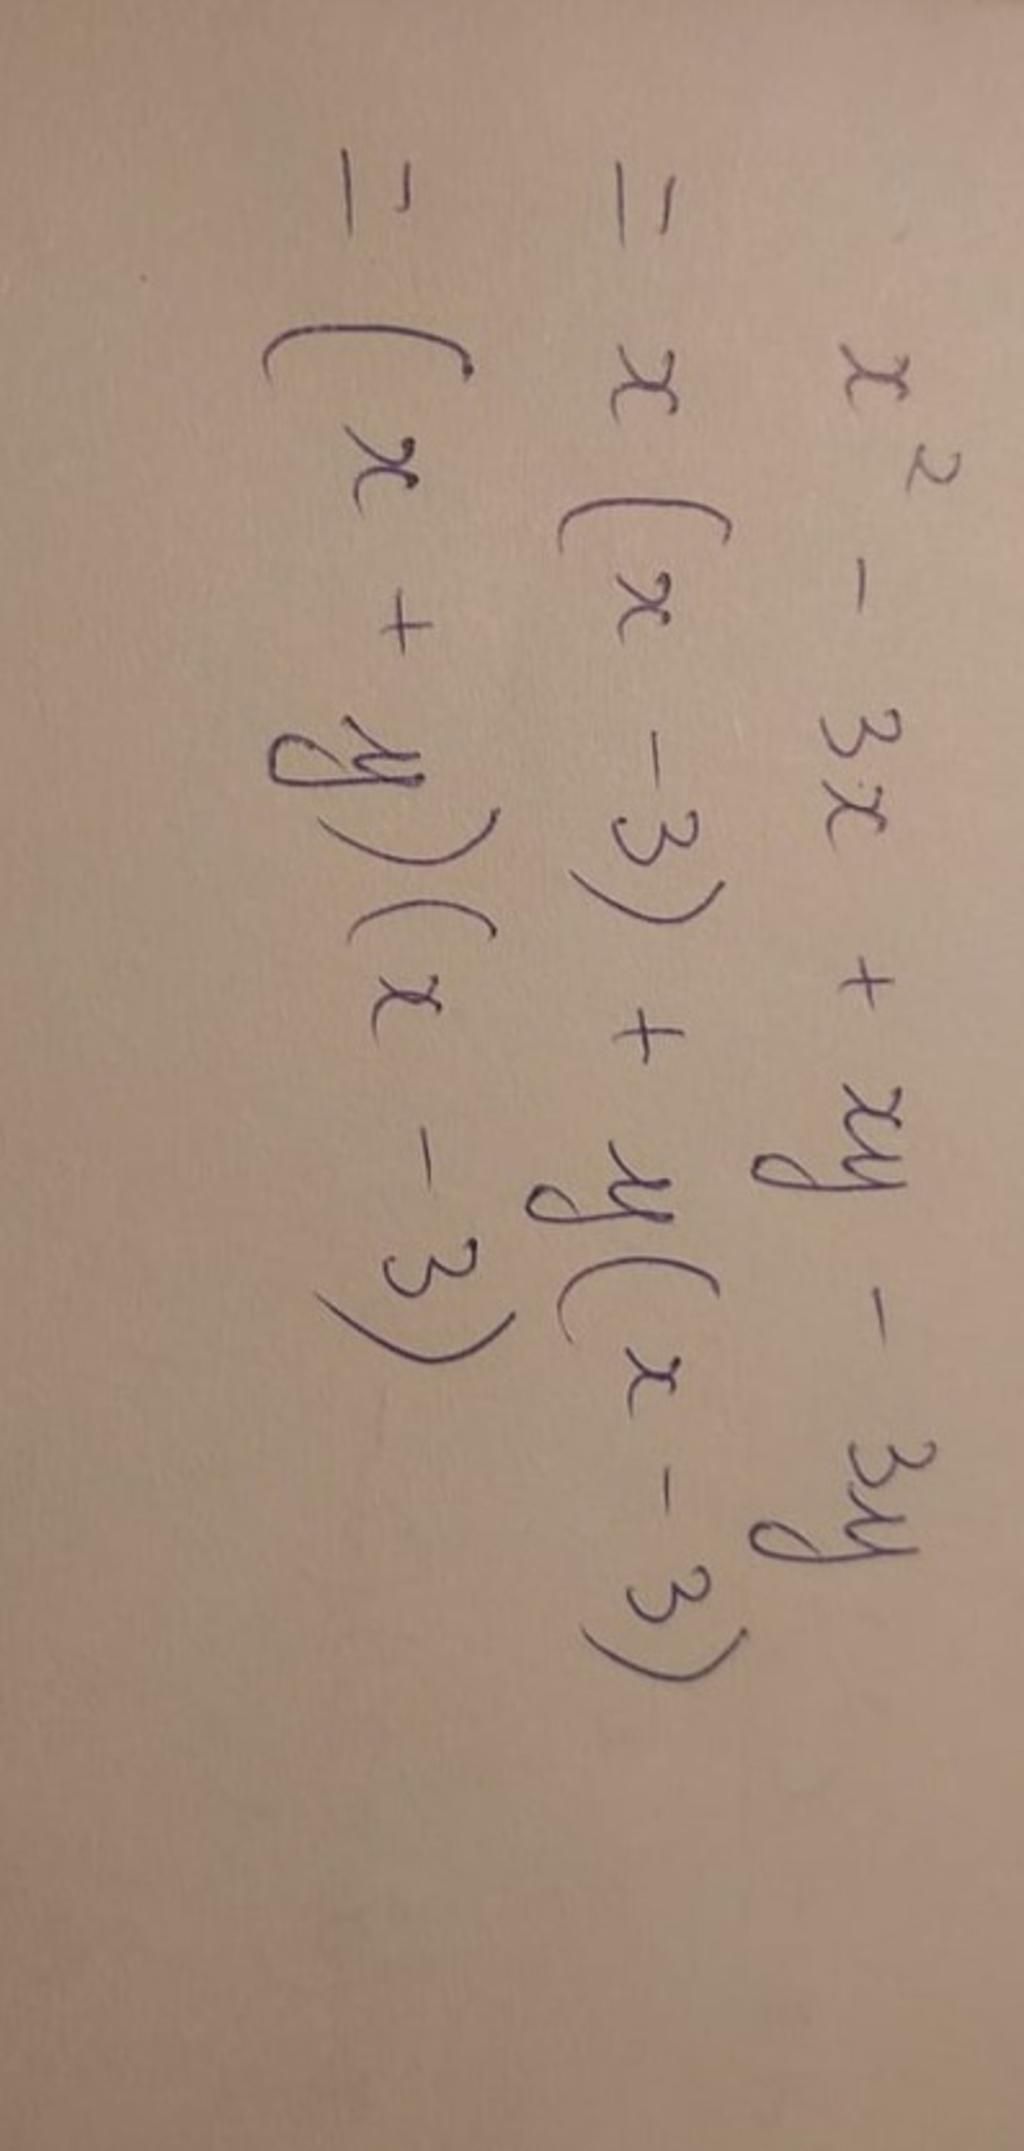 x² - 3x + xy - 3y
= x(x - 3) + y(x - 3)
= (x + y)(x - 3)